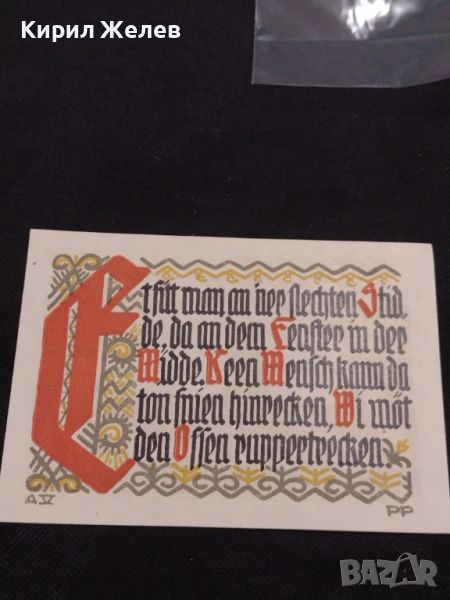 Кирил Желев
Et sitt man an iner slechten Stid
de, da an dem Fenster in der
Midde. Keen Mensch kann da
ton snien hinrecken, Wi möt
den Ossen ruppertrecken.
A V
PP
BAZAR